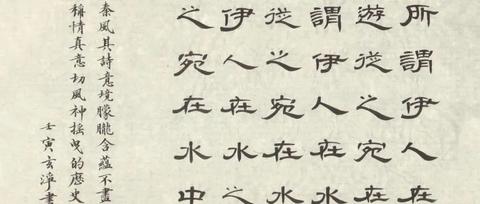 所謂伊人在
遊從之宛在
謂伊人在水
從之宛在水
伊人在水之
之宛在水中
秦風其詩意境朦朧含蘊不盡
稱情真意切風神搖曳的歷史
壬寅玄淨書